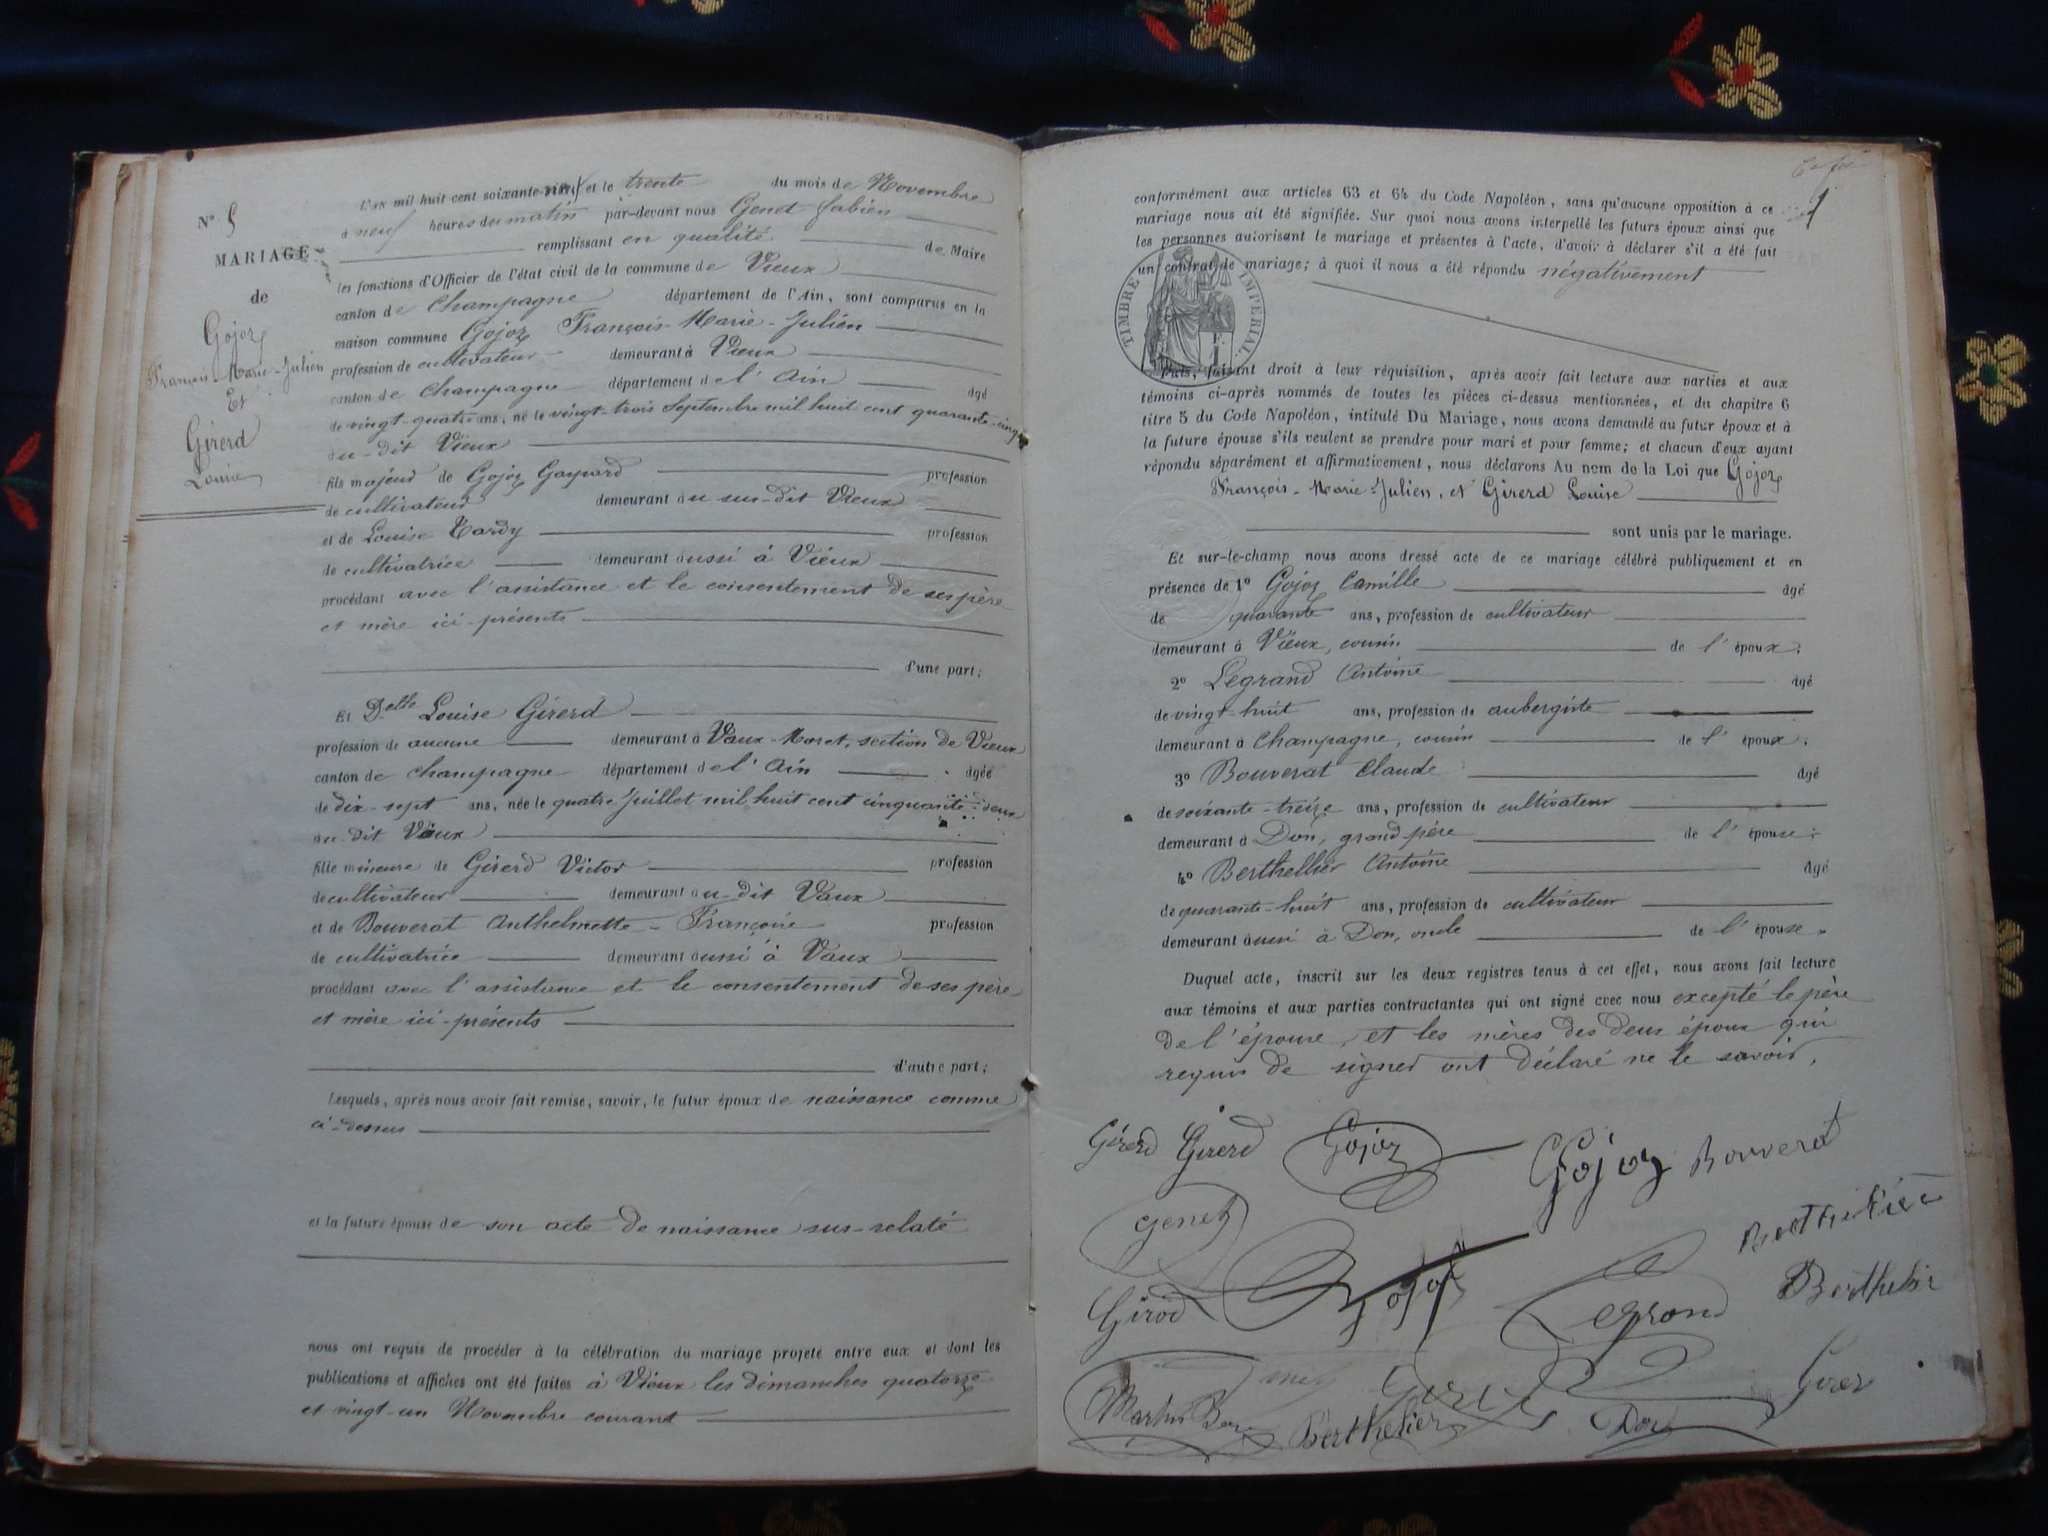 N° 5
MARIAGE
de
Gojoz
François-Marie-Julien
Et
Girerd
Louise
L'an mil huit cent soixante-neuf et le trente du mois de Novembre
à neuf heures du matin par-devant nous Genet fabien
remplissant en qualité de Maire
les fonctions d'Officier de l'état civil de la commune de Vieux
canton de Champagne département de l'Ain, sont comparus en la
maison commune Gojoz François-Marie-Julien
profession de cultivateur demeurant à Vieux
canton de Champagne département de l'Ain âgé
de vingt-quatre ans, né le vingt-trois Septembre mil huit cent quarante-cinq
au-dit Vieux
fils majeur de Gojoz Gaspard profession
de cultivateur demeurant au sus-dit Vieux
et de Louise Tardy profession
de cultivatrice demeurant aussi à Vieux
procédant avec l'assistance et le consentement de ses père
et mère ici-présents
d'une part;
Et Delle Louise Girerd
profession de aucune demeurant à Vaux-Moret, section de Vieux
canton de Champagne département de l'Ain âgée
de dix-sept ans, née le quatre Juillet mil huit cent cinquante-deux
au-dit Vaux
fille mineure de Girerd Victor profession
de cultivateur demeurant au-dit Vaux
et de Bouverat Anthelmette-Françoise profession
de cultivatrice demeurant aussi à Vaux
procédant avec l'assistance et le consentement de ses père
et mère ici-présents
d'autre part;
Lesquels, après nous avoir fait remise, savoir, le futur époux de naissance comme
ci-dessus
et la future épouse de son acte de naissance sus-relaté
nous ont requis de procéder à la célébration du mariage projeté entre eux et dont les
publications et affiches ont été faites à Vieux les dimanches quatorze
et vingt-un Novembre courant
conformément aux articles 63 et 64 du Code Napoléon, sans qu'aucune opposition à ce
mariage nous ait été signifiée. Sur quoi nous avons interpellé les futurs époux ainsi que
les personnes autorisant le mariage et présentes à l'acte, d'avoir à déclarer s'il a été fait
un contrat de mariage; à quoi il nous a été répondu négativement
TIMBRE IMPÉRIAL
Puis, faisant droit à leur réquisition, après avoir fait lecture aux parties et aux
témoins ci-après nommés de toutes les pièces ci-dessus mentionnées, et du chapitre 6
titre 5 du Code Napoléon, intitulé Du Mariage, nous avons demandé au futur époux et à
la future épouse s'ils veulent se prendre pour mari et pour femme; et chacun d'eux ayant
répondu séparément et affirmativement, nous déclarons Au nom de la Loi que Gojoz
François-Marie-Julien, et Girerd Louise
sont unis par le mariage.
Et sur-le-champ nous avons dressé acte de ce mariage célébré publiquement et en
présence de 1° Gojoz Camille âgé
de quarante ans, profession de cultivateur
demeurant à Vieux, cousin de l'époux;
2° Legrand Antoine âgé
de vingt-huit ans, profession de aubergiste
demeurant à Champagne, cousin de l'époux;
3° Bouverat Claude âgé
de soixante-treize ans, profession de cultivateur
demeurant à Don, grand père de l'épouse;
4° Berthellier Antoine âgé
de quarante-huit ans, profession de cultivateur
demeurant aussi à Don, oncle de l'épouse.
Duquel acte, inscrit sur les deux registres tenus à cet effet, nous avons fait lecture
aux témoins et aux parties contractantes qui ont signé avec nous excepté le père
de l'épouse, et les mères des deux époux qui
requis de signer ont déclaré ne le savoir.
Girerd Girerd Gojoz Gojoz Bouverat
Genet
Girod Gojoz Legrand Berthelier
Martin Berthelier